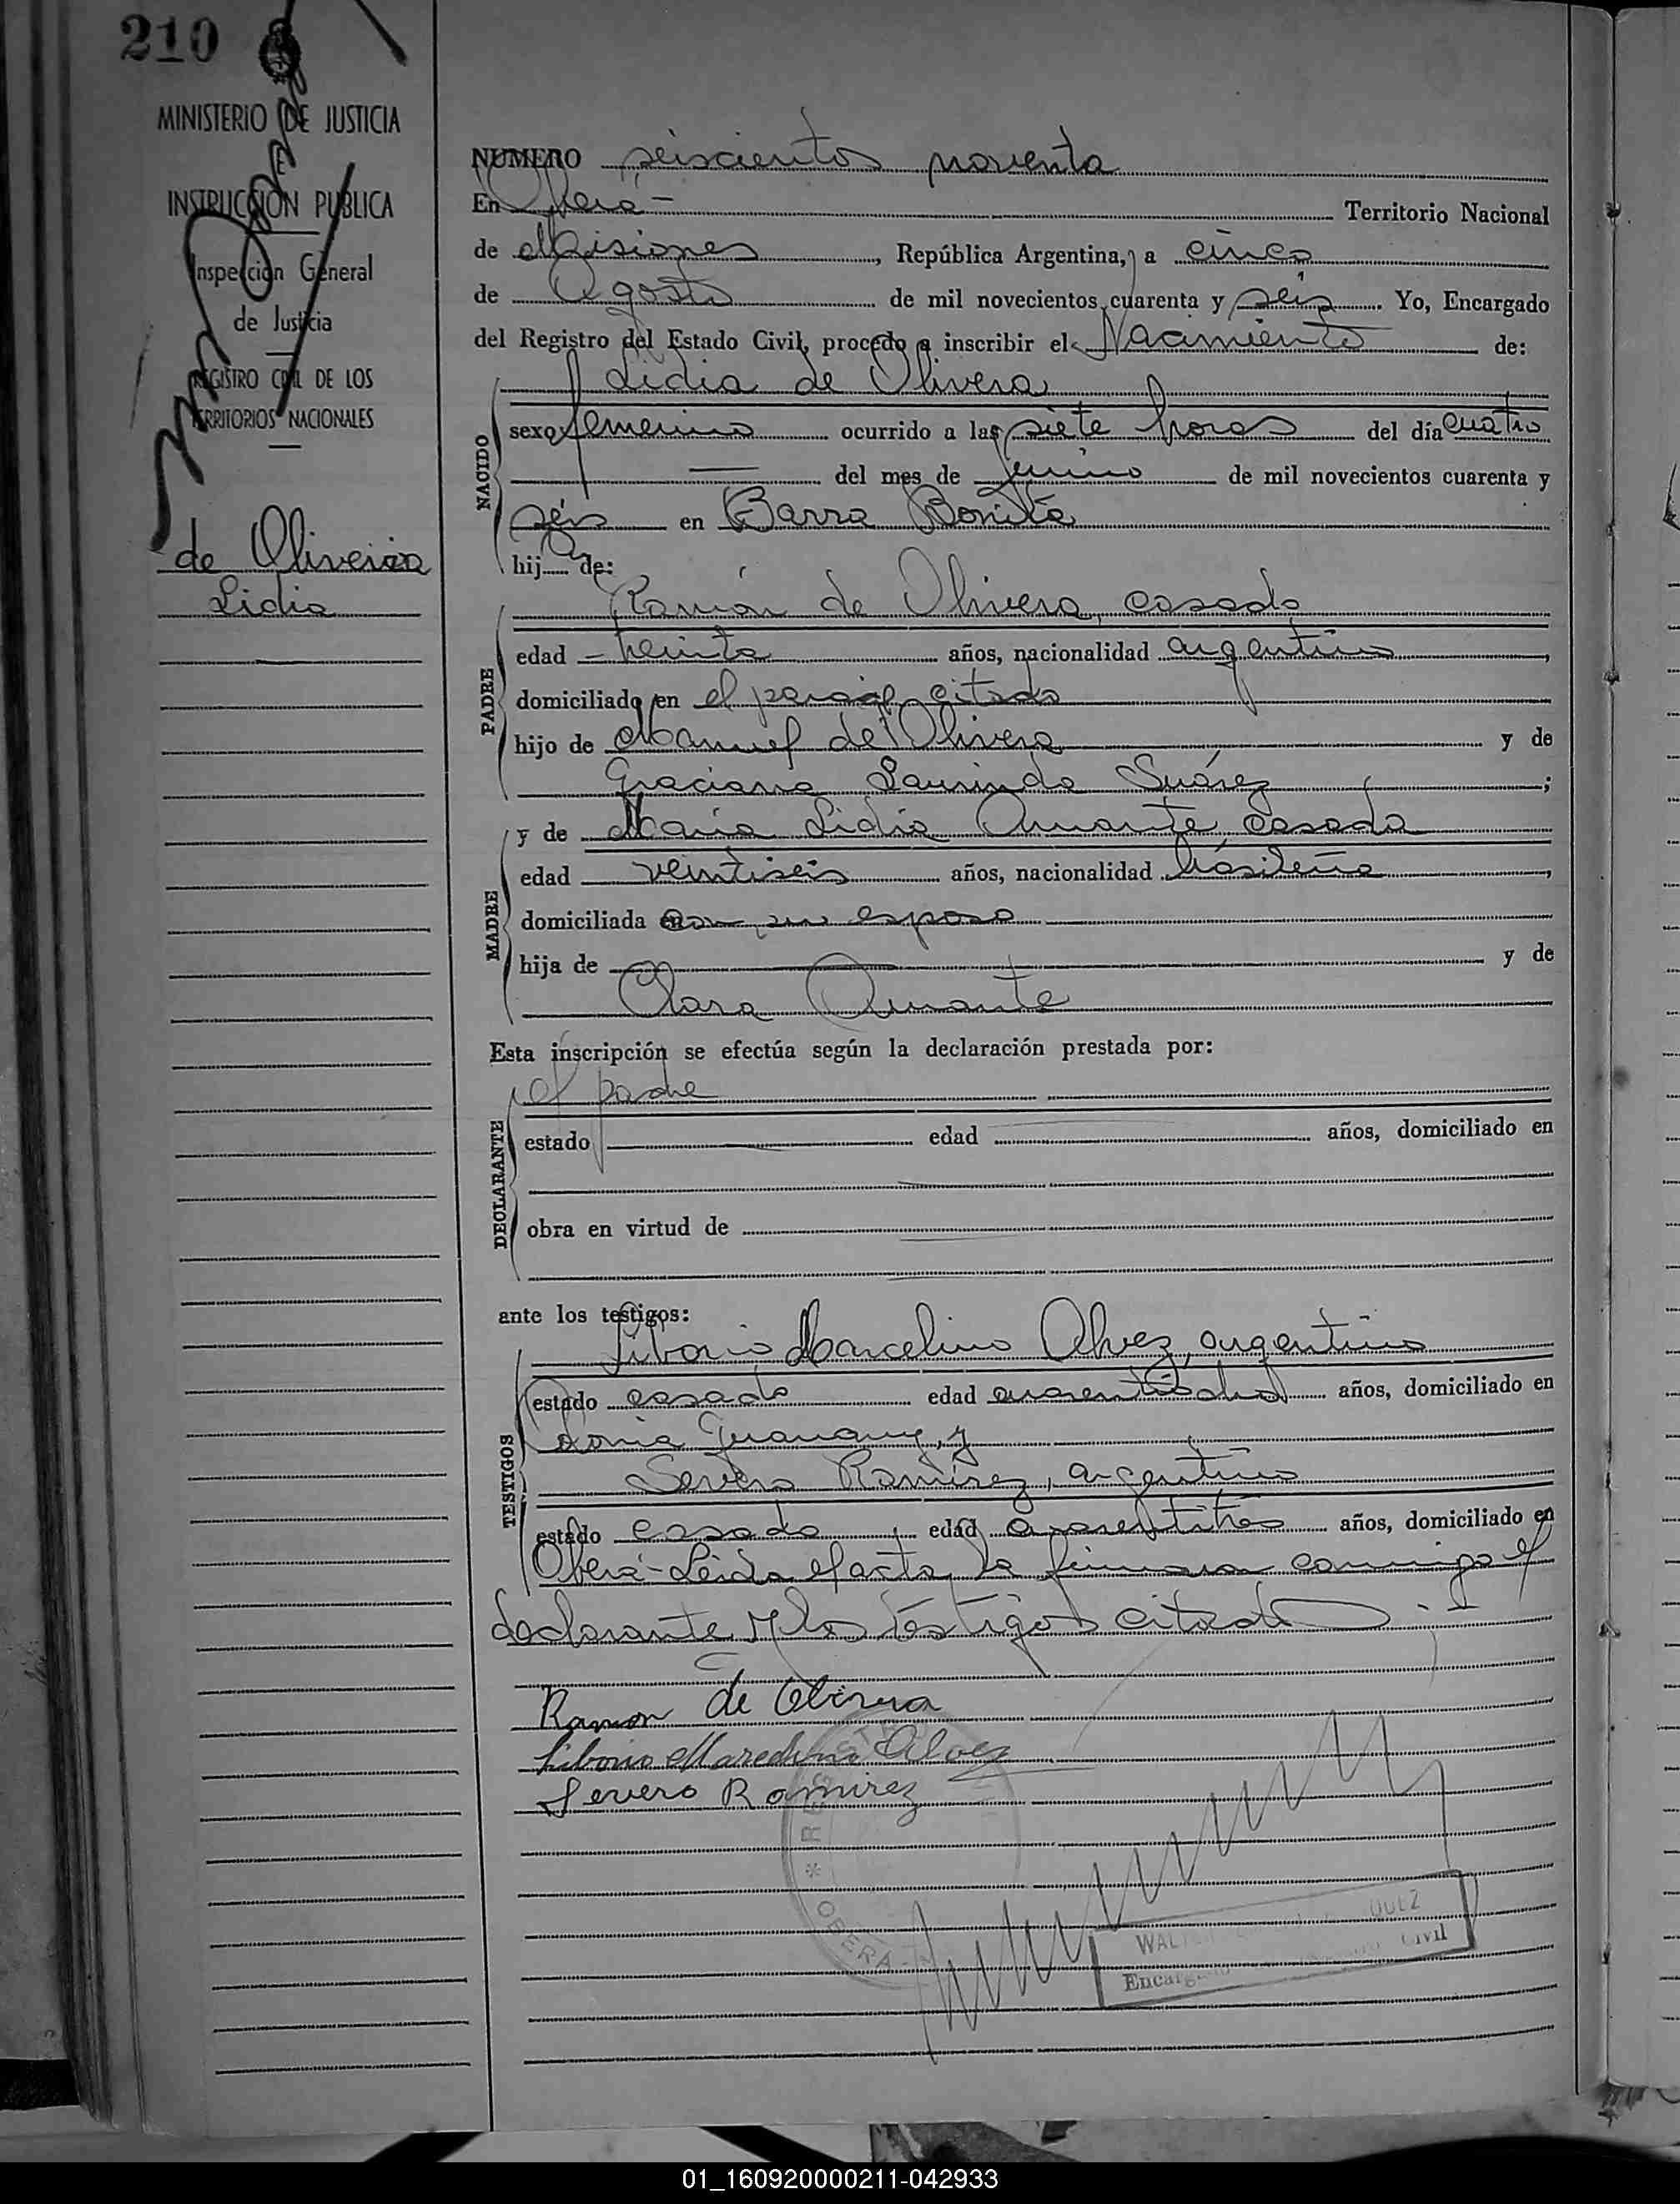 210
MINISTERIO DE JUSTICIA
E
INSTRUCCIÓN PUBLICA
Inspección General
de Justicia
REGISTRO CIVIL DE LOS
TERRITORIOS NACIONALES
de Oliveira
Lidia
NUMERO seiscientos noventa
En Oberá - Territorio Nacional
de Misiones, República Argentina, a cinco
de Agosto de mil novecientos cuarenta y seis. Yo, Encargado
del Registro del Estado Civil, procedo a inscribir el Nacimiento de:
Lidia de Olivera
NACIDO
sexo femenino ocurrido a las siete horas del día cuatro
— del mes de Junio de mil novecientos cuarenta y
seis en Barra Bonita
hija de:
Ramón de Olivera, casado
PADRE
edad - treinta años, nacionalidad argentino,
domiciliado en el paraje citado
hijo de Manuel de Olivera y de
Graciana Laurinda Suárez;
MADRE
y de María Lidia Amante, casada
edad veintiseis años, nacionalidad brasileña,
domiciliada con su esposo
hija de — y de
Clara Amante
Esta inscripción se efectúa según la declaración prestada por:
el padre
DECLARANTE
estado edad años, domiciliado en
obra en virtud de
ante los testigos:
Liborio Marcelino Alvez, argentino
TESTIGOS
estado casado edad años, domiciliado en
y
Severo Ramírez, argentino
estado casado, edad cuarentitrés años, domiciliado en
Oberá - Leída el acta, la firmaron conmigo el
declarante y los testigos citados.
Ramon de Olivera
Liborio Marcelino Alvez
Severo Ramirez
OBERA
WAL
Encarg Civil
01_160920000211-042933